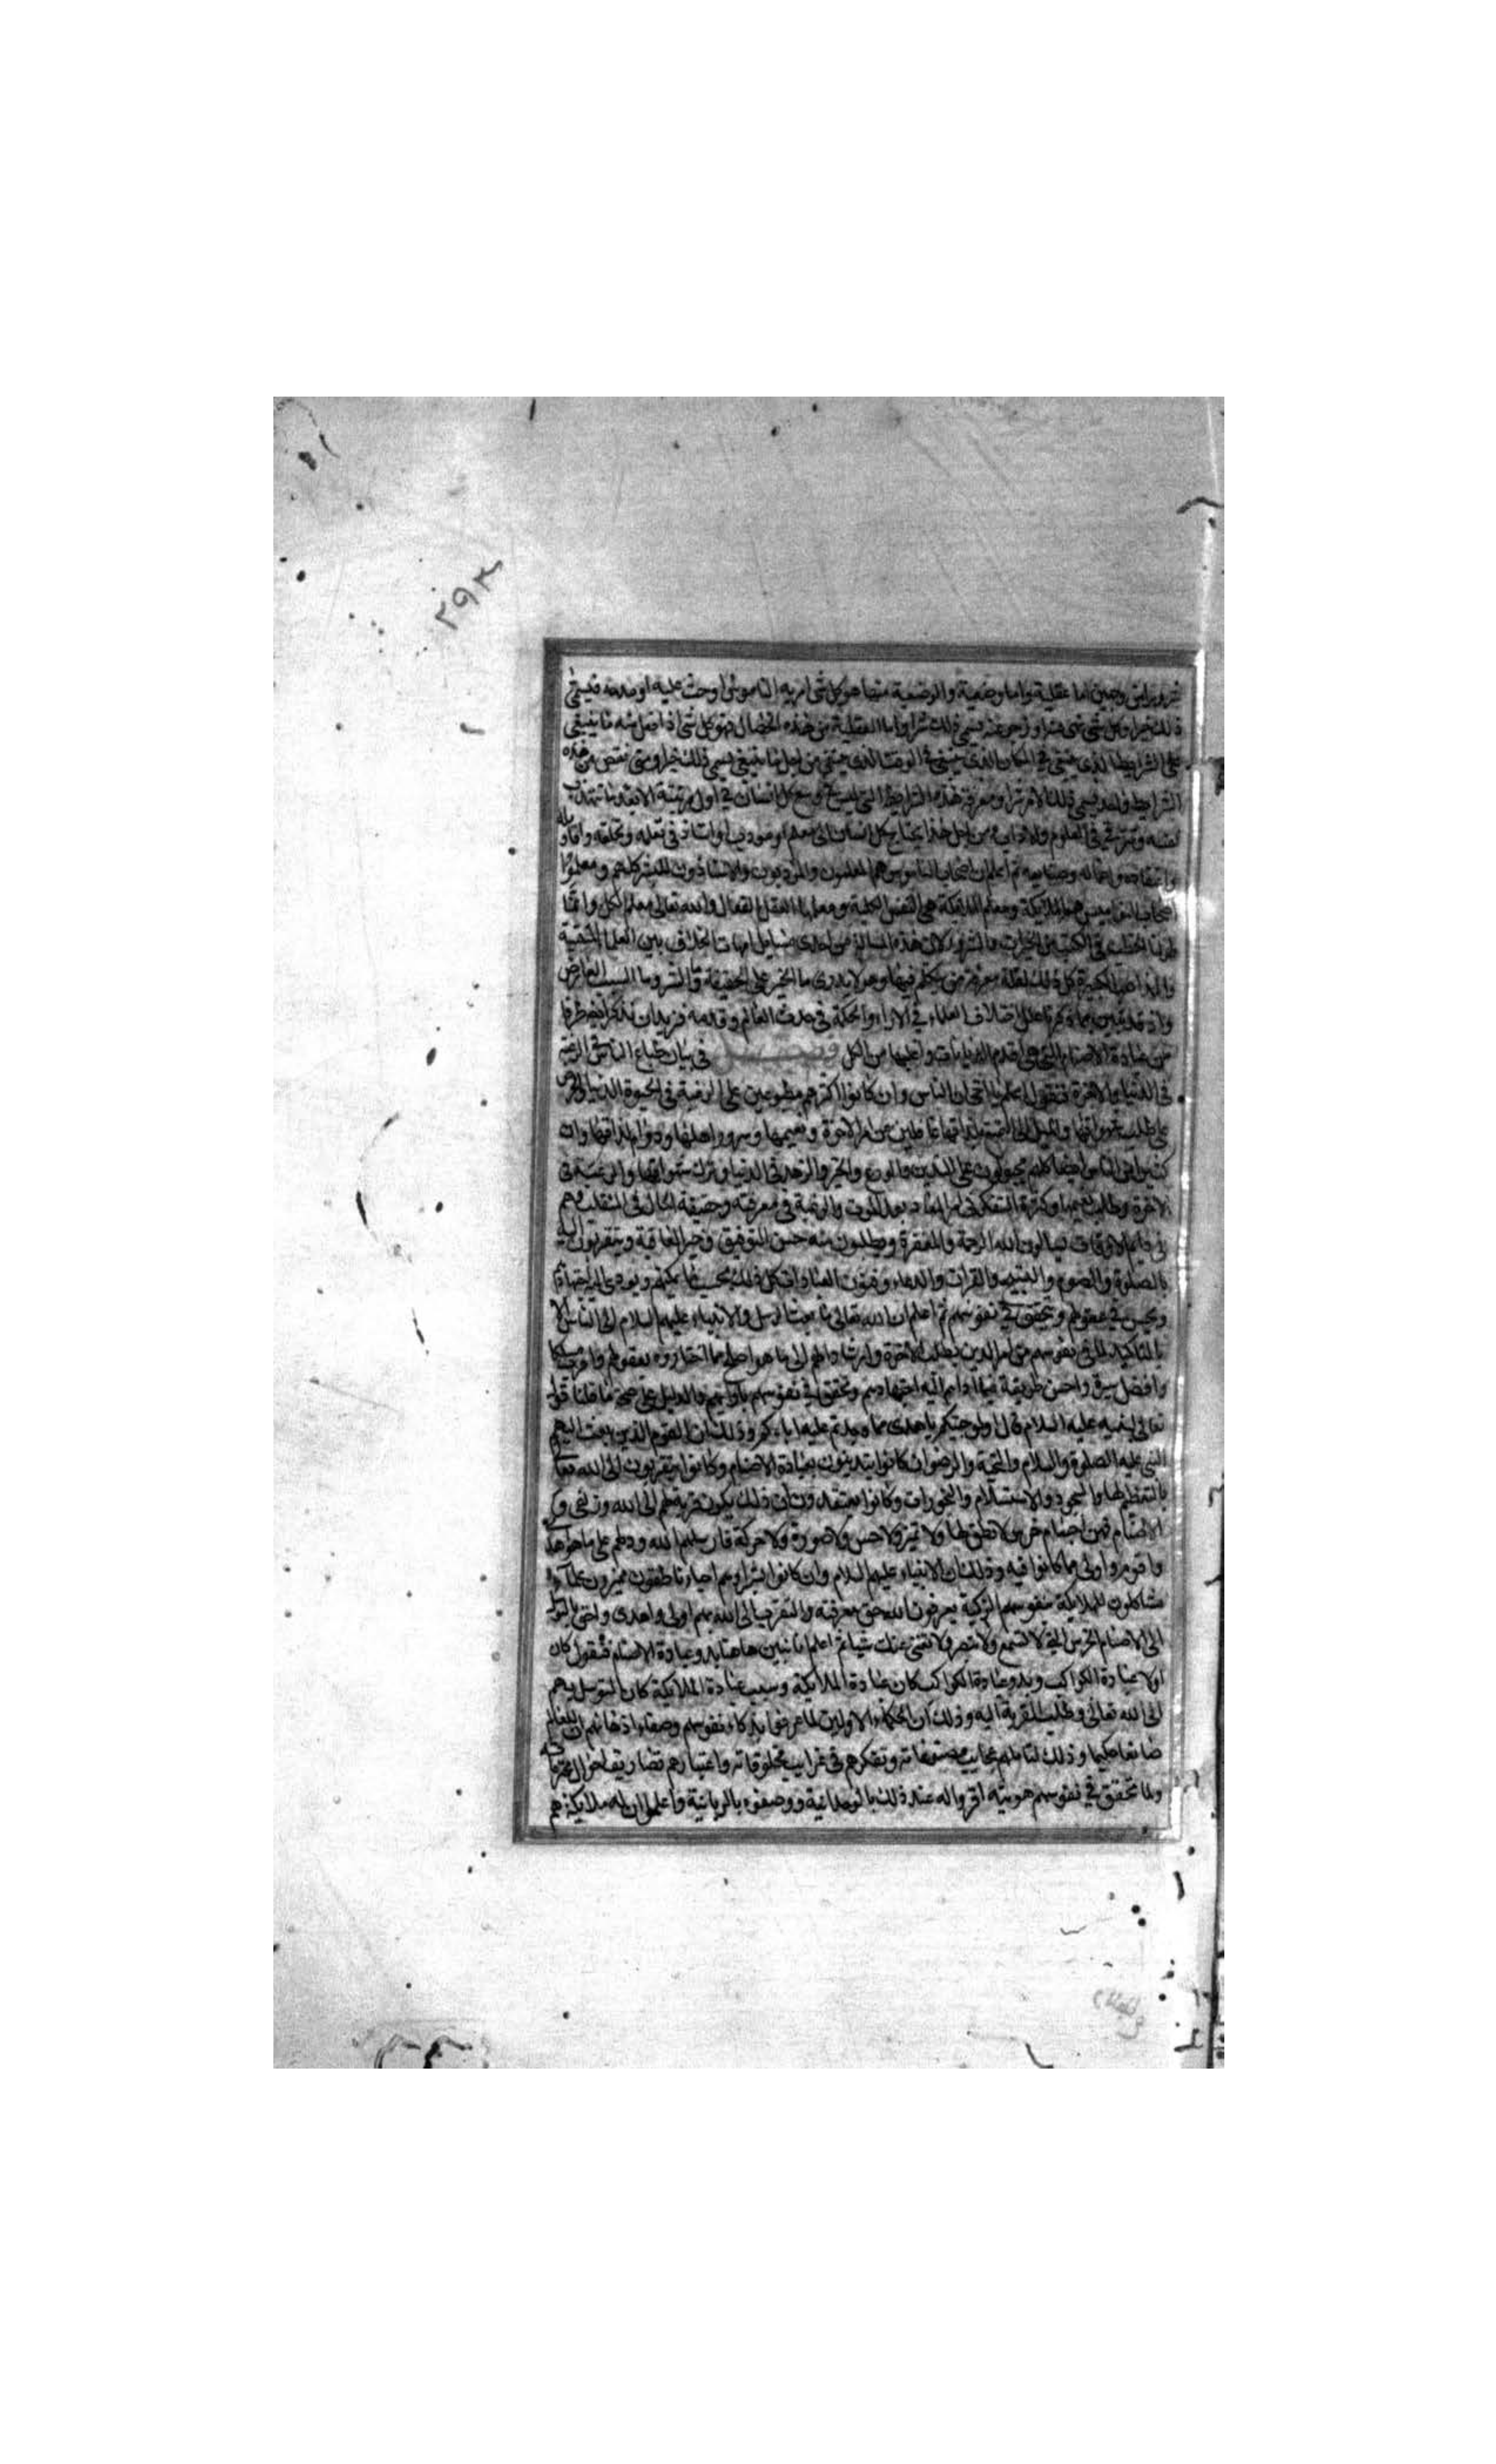 ۲۹۳
شرور امن وجهين اما عقلية واما وضعية والوضعية منها هو كل شى امر به الناموس او حث عليه او مدحه فيسمى
ذلك خيرا وكل شى نهى عنه او زجر عنه يسمى ذلك شرا واما العقلية من هذه الخصال فهو كل شى اذا فعل منه ما ينبغى
على الشرايط الذى ينبغى فى المكان الذى ينبغى فى الوقت الذى ينبغى من اجل ما ينبغى يسمى ذلك خيرا ومتى نقص من هذه
الشرايط واحد يسمى ذلك الامر شرا ومعرفة هذه الشرايط التى ليس فى وسع كل انسان فى اول مرتبته الا بعد ما تتهذب
نفسه وتترقى فى العلوم والاداب ومن اجل هذا يحتاج كل انسان الى معلم او مودب او استاذ فى تعلمه وتخلقه واقاويله
واعتقاده واعماله وصنايعه ثم اعلم ان اصحاب الناموس هم المعلمون والمودبون والاستاذون للبشر كلهم ومعلموا
اصحاب النواميس هم الملايكة ومعلم الملايكة هى النفس الكلية ومعلمها العقل الفعال والله تعالى معلم الكل وانما
طولنا الخطب فى الكتب فى الخيرات والشرور لان هذه المسالة من احدى مسايل امهات الخلاف بين العلما
والمذاهب الكبيرة كل ذلك لقلة معرفة من يتكلم فيها وهو لا يدرى ما الخير على الحقيقة وما الشر وما السبب العارض
واذ قد تبين بما ذكرنا علل اختلاف العلماء فى الاراء والحكمة فى حدث العالم وقدمه فنريد ان نذكر ايضا طرفا
من عبادة الاصنام التى هى اقدم الديانات واعلبها من الكل فصل فى بيان طباع الناس فى الرغبة
فى الدنيا والاخرة فنقول اعلم يا اخى ان الناس وان كانوا اكثرهم مطبوعين على الرغبة فى الحيوة الدنيا والحرص
على طلب شهواتها والميل الى التمتع بلذاتها غافلين عن امر الاخرة ونعيمها وسرور اهلها ودوام لذاتها وان
كثيرا من الناس ايضا كلهم مجبولون على التدين والورع والخير والزهد فى الدنيا وترك شهواتها والرغبة فى
الاخرة وطلب نعيمها وكثرة التفكر فى امر المعاد بعد الموت والرغبة فى معرفته وحقيقة الحال فى المنقلب وهم
فى دايم الاوقات يسالون الله الرحمة والمغفرة ويطلبون منه حسن التوفيق وخير العاقبة ويتقربون اليه
بالصلوة والصوم والتسبيح والقرات والدعاء وفنون العبادات كل ذلك بحسب ما يمكنهم ويودى اليه اجتهادهم
ويحسن فى عقولهم ويتحقق فى نفوسهم ثم اعلم ان الله تعالى ما بعث الرسل والانبياء عليهم السلام الى الناس الا
بالتاكيد لما فى نفوسهم من امر الدين وطلب الاخرة وارشادا لهم الى ما هو اصلح مما اختاروه بعقولهم واقرب مسلكا
وافضل سيرة واحسن طريقة مما اداهم اليه اجتهادهم وتحقق فى نفوسهم بارائهم والدليل على صحة ما قلنا قول
تعالى لنبيه عليه السلام قال اولو جئتكم باهدى مما وجدتم عليه اباءكم وذلك ان القوم الذين بعث اليهم
النبى عليه الصلوة والسلام والتحية والرضوان كانوا يتدينون بعبادة الاصنام وكانوا يتقربون الى الله تعالى
بالتعظيم لها والسجود والاستسلام والبخورات وكانوا يعتقدون ان ذلك يكون قربة لهم الى الله وزلفى
الاصنام فهى اجسام خرس لا نطق لها ولا تميز ولا حس ولا صورة ولا حركة فارسلهم الله ودلهم على ما هو اهدى
واقوم واولى مما كانوا فيه وذلك ان الانبياء عليهم السلام وان كانوا بشرا وهم احياء ناطقون مميزون علماء
مشاكلون للملايكة بنفوسهم الزكية يعرفون الله حق معرفته والتقرب الى الله بهم اولى واهدى واحق
الى الاصنام الخرس التى لا تسمع ولا تبصر ولا تغنى عنك شيا ثم اعلم انا نبين هاهنا بدو عبادة الاصنام فنقول كان
اولا عبادة الكواكب وبدو عبادة الكواكب كان عبادة الملايكة وسبب عبادة الملايكة كان التوسل بهم
الى الله تعالى وطلب القربة اليه وذلك ان الحكماء الاولين لما عرفوا بذكاء نفوسهم وصفاء اذهانهم ان للعالم
صانعا حكيما وذلك لتاملهم عجايب مصنوعاته وتفكرهم فى غرايب مخلوقاته واعتبارهم تصاريف احوال مخترعاته
ولما تحقق فى نفوسهم هويته اقروا له عند ذلك بالوحدانية ووصفوه بالربانية واعلموا ان له ملايكة هم